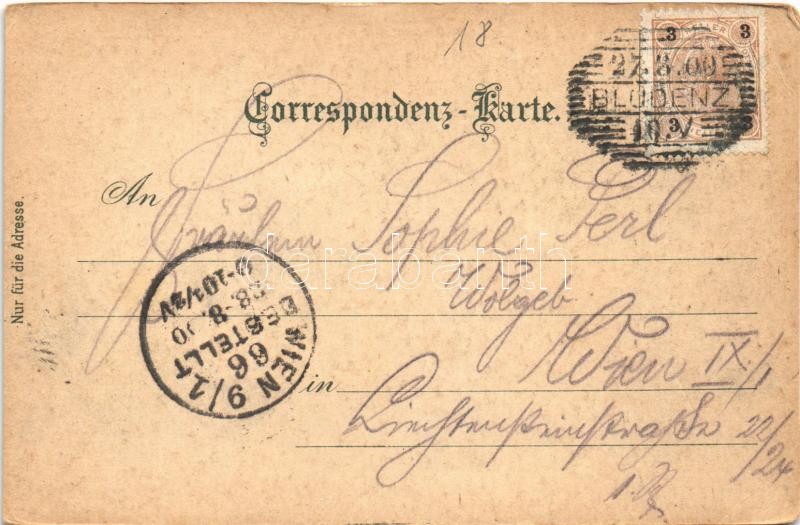 18
3 HELLER 3
27.8.00
BLUDENZ
3
Correspondenz-Karte.
An
Fräulein Sophie Perl
darabanth
Wolgeb
Wien IX/1
in
Liechtensteinstraße 22/24
Nur für die Adresse.
WIEN 9/1
66
BESTELLT
28.8.00
9-10½V